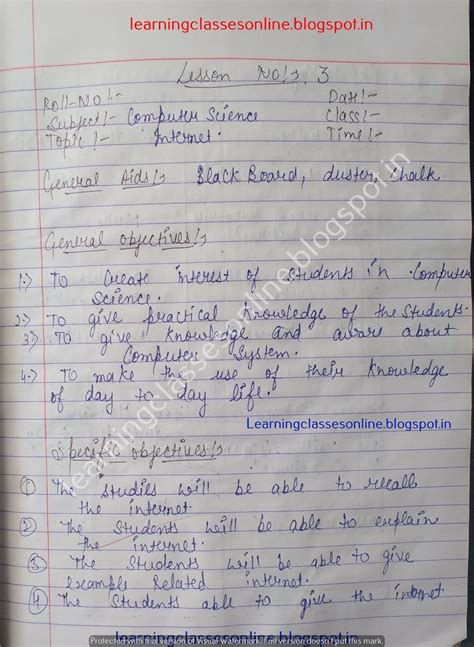 learningclassesonline.blogspot.in
Lesson No:- 3
Roll-No:- Date:-
Subject:- Computer Science Class:-
Topic:- Internet. Time:-
General Aids:- Black Board, duster, Chalk.
General objectives:-
1:-) To Create interest of Students in Computer
Science.
2:-) To give practical Knowledge of the Students.
3:-) To give Knowledge and aware about
Computer System.
4:-) To make the use of their Knowledge
of day to day life.
Learningclassesonline.blogspot.in
Specific objectives:-
① The Studies will be able to recall
the internet.
② The Students will be able to explain
the internet.
③ The Students will be able to give
Example Related internet.
④ The Students able to give the internet
learningclassesonline.blogspot.in
Protected with free version of Visual Watermark. Full version doesn't put this mark.
learningclassesonline.blogspot.in